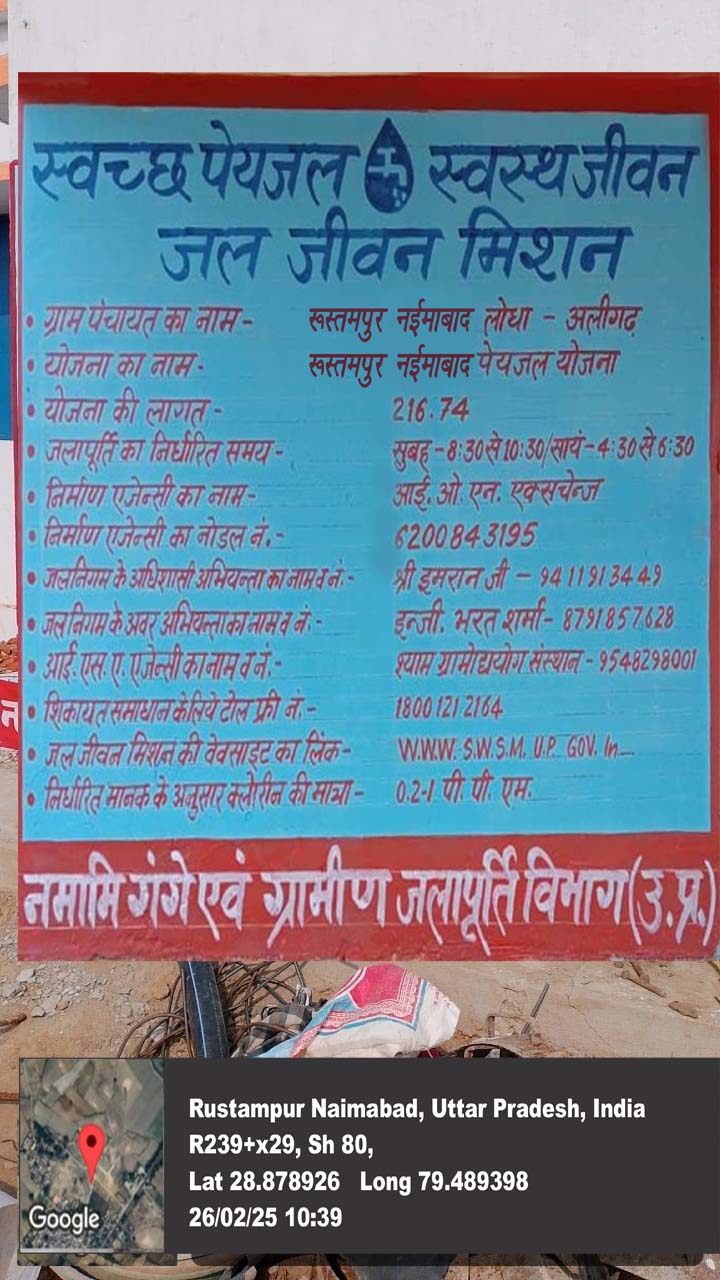 स्वच्छ पेयजल स्वस्थ जीवन
जल जीवन मिशन
• ग्राम पंचायत का नाम - रूस्तमपुर नईमाबाद लोधा - अलीगढ़
• योजना का नाम - रूस्तमपुर नईमाबाद पेयजल योजना
• योजना की लागत - 216.74
• जलापूर्ति का निर्धारित समय - सुबह - 8:30 से 10:30/सायं - 4:30 से 6:30
• निर्माण एजेन्सी का नाम - आई. ओ. एन. एक्सचेन्ज
• निर्माण एजेन्सी का नोडल नं. - 6200843195
• जलनिगम के अधिशासी अभियन्ता का नाम व नं. - श्री इमरान जी - 9411913449
• जलनिगम के अवर अभियन्ता का नाम व नं. - इन्जी. भरत शर्मा - 8791857628
• आई. एस. ए. एजेन्सी का नाम व नं. - श्याम ग्रामोद्ययोग संस्थान - 9548298001
• शिकायत समाधान के लिये टोल फ्री नं. - 1800 121 2164
• जल जीवन मिशन की वेवसाइट का लिंक - W.W.W. S.W.S.M. U.P. GOV. In
• निर्धारित मानक के अनुसार क्लोरीन की मात्रा - 0.2-1 पी. पी. एम.
नमामि गंगे एवं ग्रामीण जलापूर्ति विभाग (उ.प्र.)
Rustampur Naimabad, Uttar Pradesh, India
R239+x29, Sh 80,
Lat 28.878926 Long 79.489398
26/02/25 10:39
Google